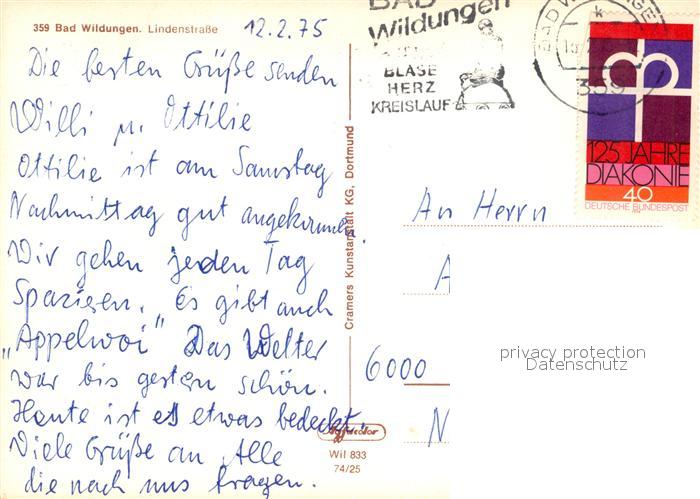 359 Bad Wildungen. Lindenstraße
12.2.75
Die besten Grüße senden
Willi u. Ottilie
Ottilie ist am Samstag
Nachmittag gut angekommen.
Wir gehen jeden Tag
Spaziesen. Es gibt auch
„Appelwoi" Das Wetter
war bis gestern schön.
Heute ist es etwas bedeckt.
Viele Grüße an Alle
die nach uns fragen.
Cramers Kunstanstalt KG, Dortmund
Wil 833
74/25
BAD
Wildungen
BLASE
HERZ
KREISLAUF
359
125 JAHRE
DIAKONIE
40
DEUTSCHE BUNDESPOST
An Herrn
A
6000
N
privacy protection
Datenschutz